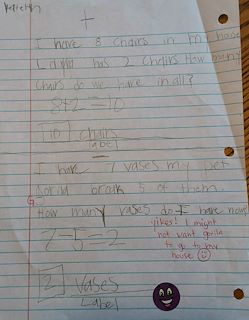 +
I have 8 chairs in my house
has 2 chairs How many
chairs do we have in all?
8+2=10
10 chairs
label
−
I have 7 vases my pet
gorila break 5 of them.
How many vases do I have now?
7-5=2
yikes! I might
not want gorilla
to go to my
house
2 vases
Label